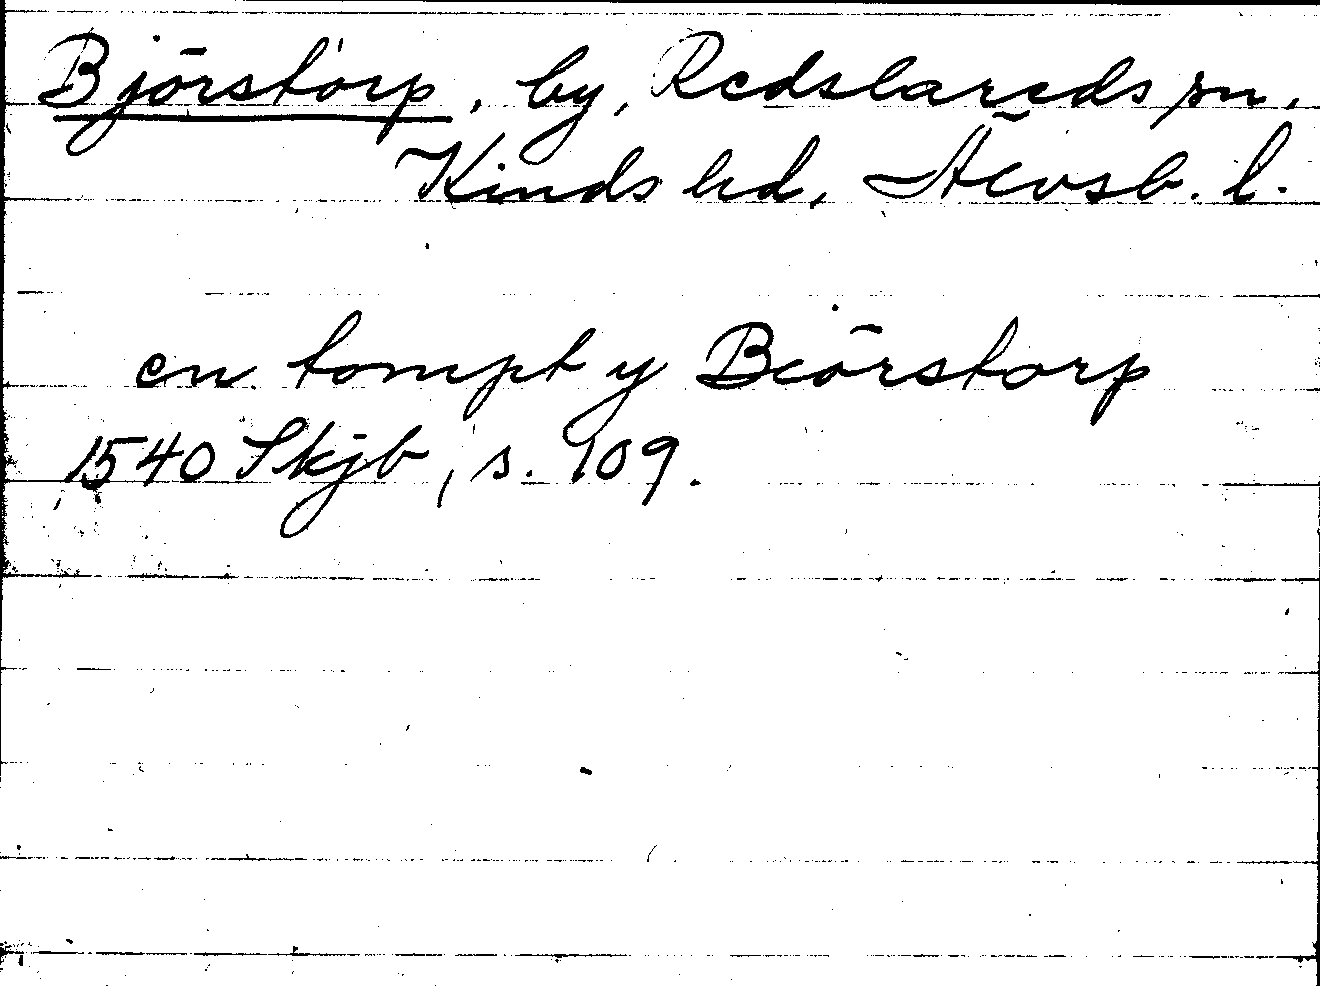 Björstorp, by, Redslareds sn.
Kinds hd, Älvsb. l.
en tompt y Beörstorp
1540 Skjb, s. 109.